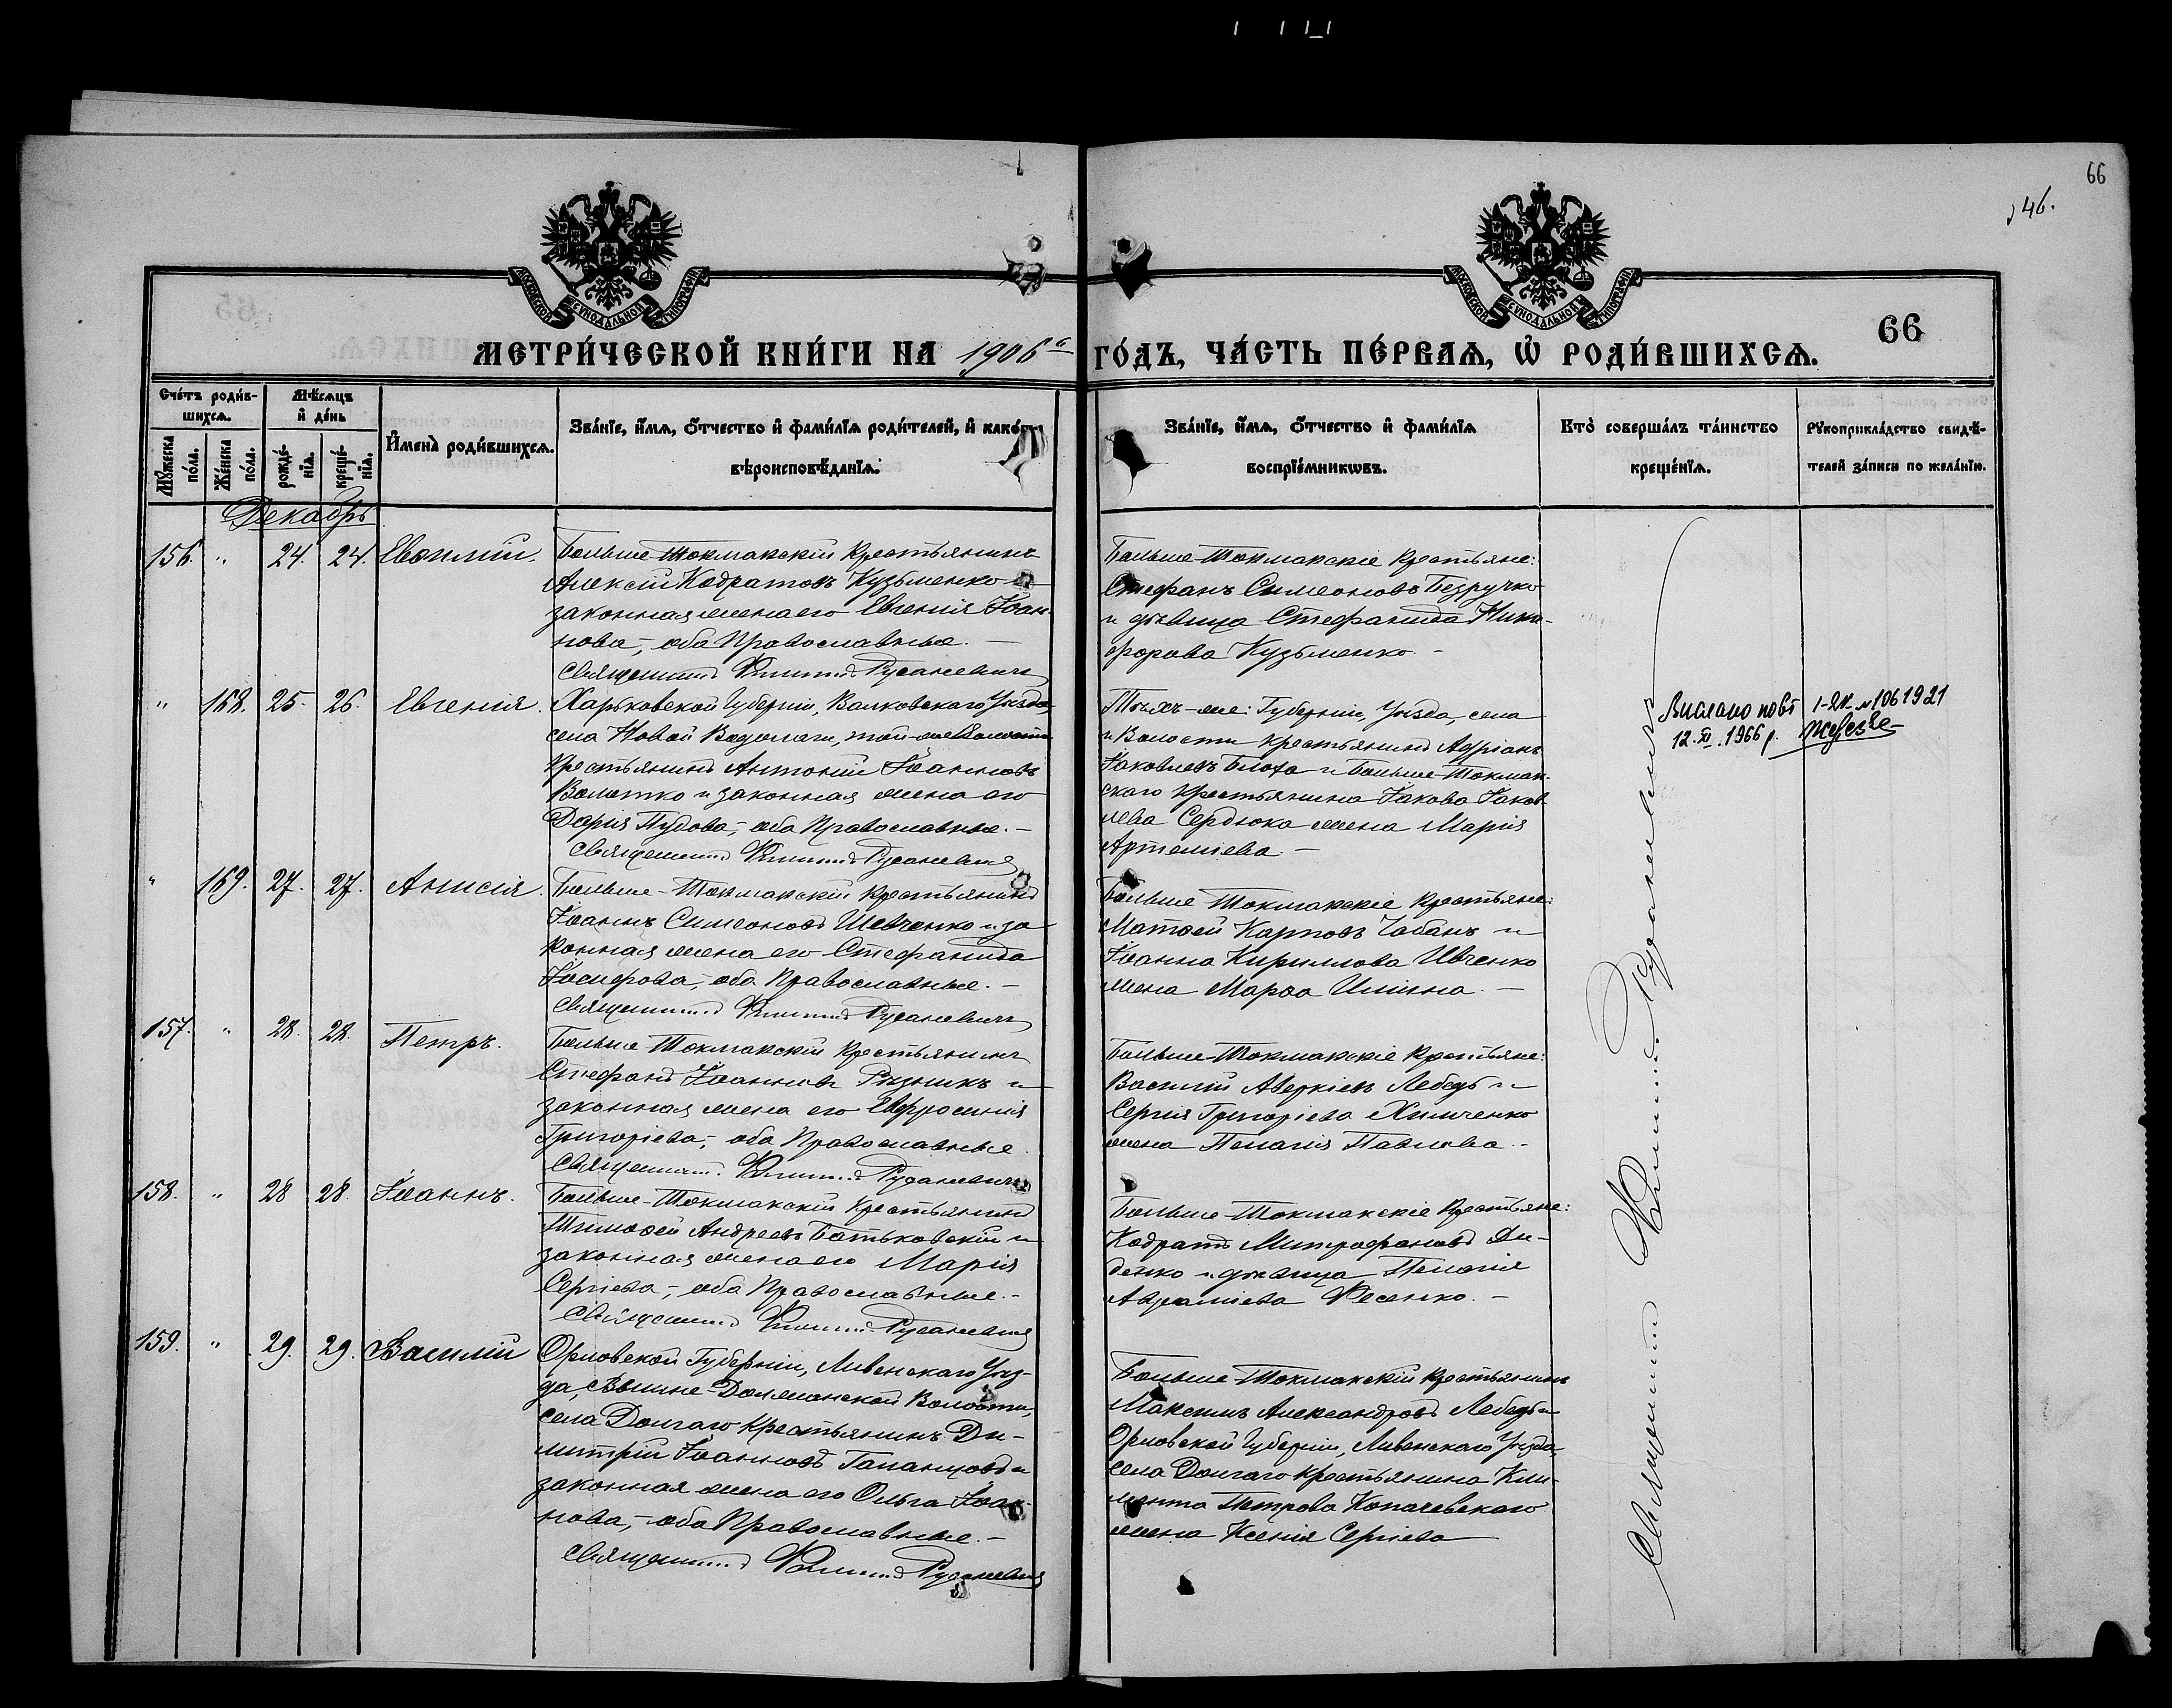 66
146.
МОСКОВСКОЙ СѴНОДАЛЬНОЙ ТИПОГРАФІИ
МОСКОВСКОЙ СѴНОДАЛЬНОЙ ТИПОГРАФІИ
66
МЕТРИ́ЧЕСКОЙ КНИ́ГИ НА 1906й ГО́ДЪ, ЧА́СТЬ ПЕ́РВАѦ, Ѡ҆ РОДИ́ВШИХСѦ.
Сче́тъ роди́в-
шихсѧ.
Мꙋ́жеска по́ла.
Же́нска по́ла.
Мѣ́сѧцъ
и҆ де́нь
рожде́-
нїѧ.
креще́-
нїѧ.
И҆мена̀ роди́вшихсѧ.
Зва́нїе, и҆́мѧ, ѻ҆́тчество и҆ фами́лїѧ роди́телей, и҆ како́гѡ
вѣроисповѣ́данїѧ.
Зва́нїе, и҆́мѧ, ѻ҆́тчество и҆ фами́лїѧ
воспрїе́мникѡвъ.
Кто̀ соверша́лъ та́инство
креще́нїѧ.
Рꙋкоприкла́дство свидѣ́-
телей за́писи по жела́нїю.
Декабрь
156. " 24. 24. Евѳимій.
Больше-Токмакскій крестьянинъ
Алексій Кодратовъ Кузьменко и
законная жена его Евгенія Іоан-
нова, оба Православные.
Священникъ Русаневичъ
Больше-Токмакскіе крестьяне:
Стефанъ Симеоновъ Безручко
и дѣвица Стефанида Ники-
форова Кузьменко.
" 168. 25. 26. Евгенія.
Харьковской Губерніи, Валковскаго Уѣзда,
села Новой Водолаги, той-же Волости
крестьянинъ Антоній Іоанновъ
и законная жена его
Дарія Пудова, оба Православные.
Священникъ Русаневичъ
Тѣхъ-же: Губерніи, Уѣзда, села
и Волости крестьянинъ Адріанъ
Іаковлевъ Блоха и Больше-Токмак-
скаго крестьянина Іакова Іаков-
лева Сердюка жена Марія
Артеміева.
Вислано повт
12.XI.1966 р.
1-ЯК №1061921
" 169. 27. 27. Анисія.
Больше-Токмакскій крестьянинъ
Іоаннъ Симеоновъ Шевченко и за-
конная жена его Стефанида
Іосифова, оба Православные.
Священникъ Русаневичъ
Больше Токмакскіе крестьяне:
Матѳей Карповъ Чабанъ и
Іоанна Кириллова Ивченко
жена Марѳа Ильина.
157. " 28. 28. Петръ.
Больше Токмакскій крестьянинъ
Стефанъ Іоанновъ Рѣзникъ и
законная жена его Евфросинія
Григоріева, оба Православные
Священникъ Русаневичъ
Больше-Токмакскіе крестьяне:
Василій Аверкіевъ Лебедь и
Сергія Григоріева Химченко
жена Пелагія Павлова.
158. " 28 28. Іоаннъ.
Больше-Токмакскій крестьянинъ
Тимоѳей Андреевъ Батьковскій и
законная жена его Марія
Сергіева, оба Православные.
Священникъ Русаневичъ
Больше-Токмакскіе крестьяне:
Кодратъ Митрофановъ Ди-
денко и дѣвица Пелагія
Авраміева Фесенко.
159. " 29. 29. Василій
Орловской Губерніи, Ливенскаго Уѣз-
да, Должанской Волости,
села Долгаго крестьянинъ Ди-
митрій Іоанновъ и
законная жена его Ольга Іоан-
нова, оба Православные.
Священникъ Русаневичъ
Больше-Токмакскій крестьянинъ
Максимъ Александровъ Лебедь и
Орловской Губерніи, Ливенскаго Уѣзда,
села Долгаго крестьянина Кли-
мента Петрова Копачевскаго
жена Ксенія Сергіева
Священникъ Русаневичъ